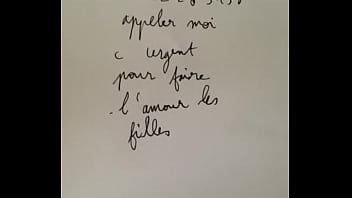 appeler moi
c urgent
pour faire
l'amour les
filles